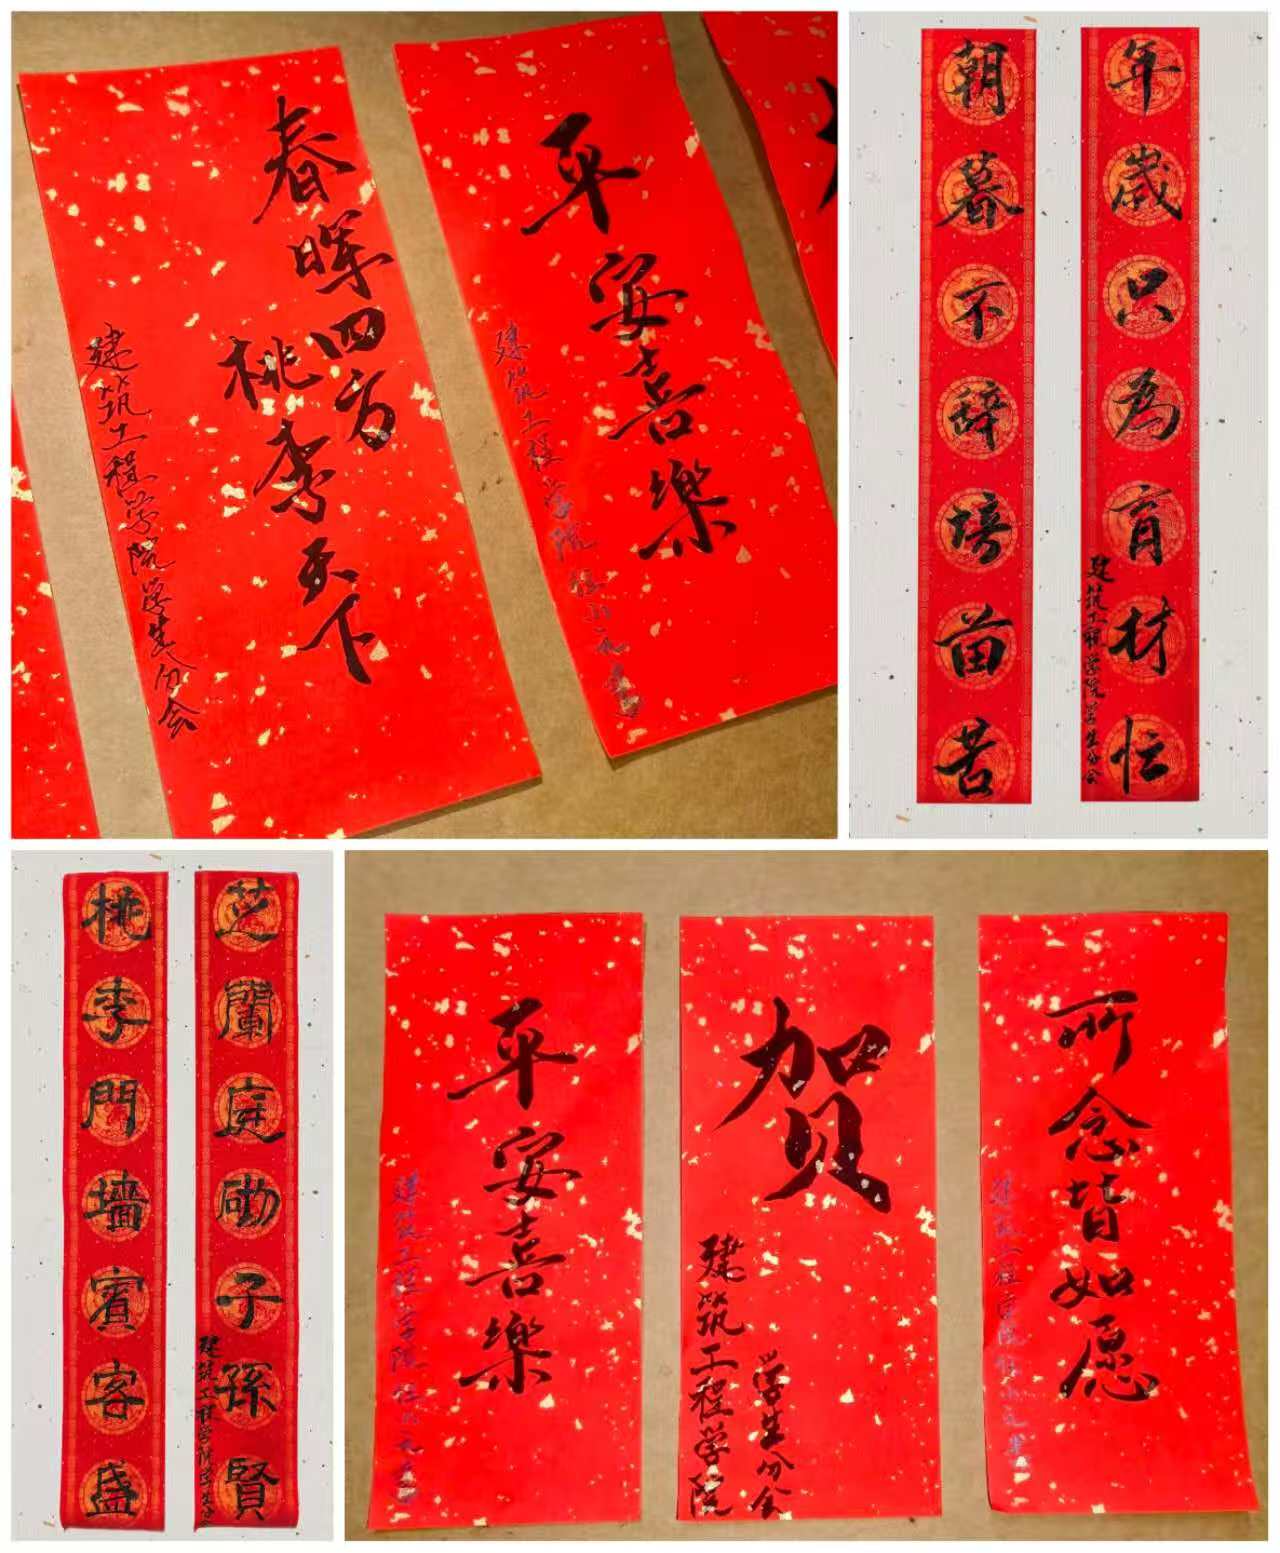 春晖四方
桃李天下
建筑工程学院学生分会
平安喜樂
建筑工程学院
朝暮不辞培苗苦
年歲只为育材忙
建筑工程学院学生分会
桃李門墙賓客盛
芝蘭庭砌子孫賢
建筑工程学院学生分会
平安喜樂
建筑工程学院
贺
建筑工程学院
学生分会
所念皆如愿
建筑工程学院